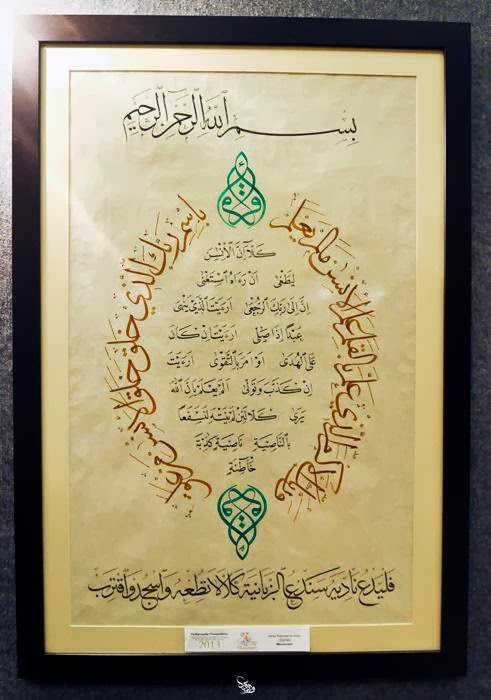 بِسْمِ اللَّهِ الرَّحْمَٰنِ الرَّحِيمِ
اقرأ
باسم ربك الذي خلق خلق الانسن من علق اقرأ
وربك الاكرم الذي علم بالقلم علم الانسن ما لم يعلم
كَلَّا إِنَّ الْإِنسَٰنَ
لَيَطْغَىٰ أَن رَّءَاهُ اسْتَغْنَىٰ
إِنَّ إِلَىٰ رَبِّكَ الرُّجْعَىٰ أَرَءَيْتَ الَّذِي يَنْهَىٰ
عَبْدًا إِذَا صَلَّىٰ أَرَءَيْتَ إِن كَانَ
عَلَى الْهُدَىٰ أَوْ أَمَرَ بِالتَّقْوَىٰ أَرَءَيْتَ
إِن كَذَّبَ وَتَوَلَّىٰ أَلَمْ يَعْلَم بِأَنَّ اللَّهَ
يَرَىٰ كَلَّا لَئِن لَّمْ يَنتَهِ لَنَسْفَعًا
بِالنَّاصِيَةِ نَاصِيَةٍ كَٰذِبَةٍ
خَاطِئَةٍ
فَلْيَدْعُ نَادِيَهُ سَنَدْعُ الزَّبَانِيَةَ كَلَّا لَا تُطِعْهُ وَاسْجُدْ وَاقْتَرِب
Calligraphy Competition
2013